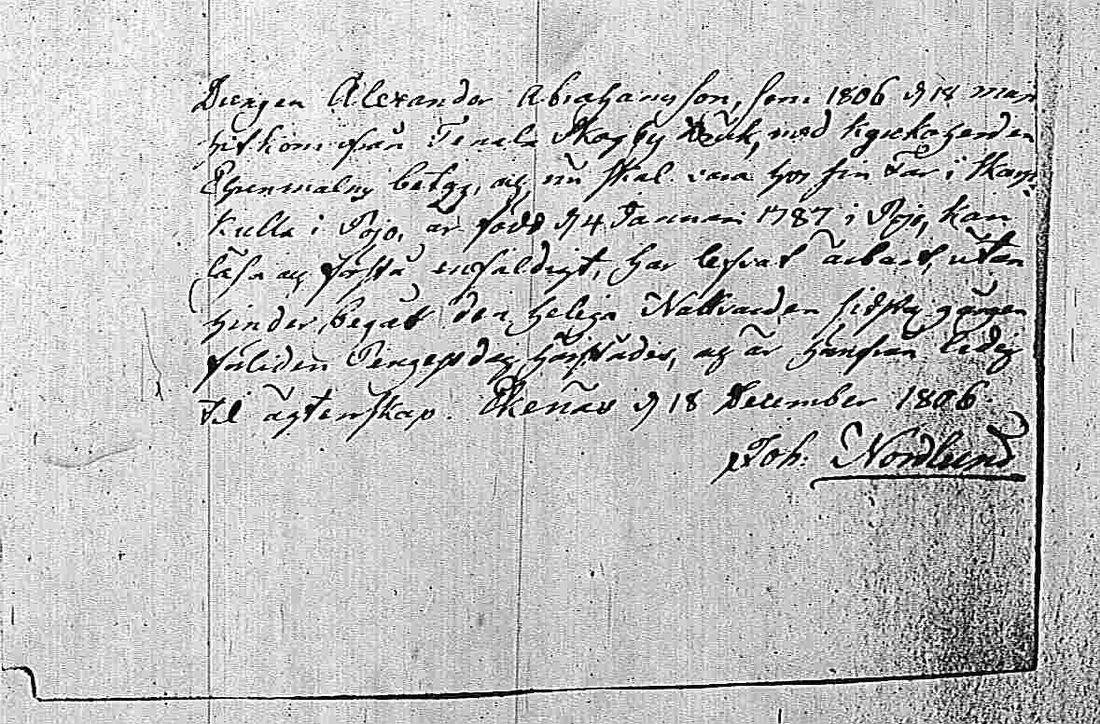 Drengen Alexander Abrahamsson, som 1806 d 18 mars
hitkom ifrån Tenala Skogby Bruk, med Kyrkoherden
Ehrenmalms betyg, och nu skal vara hos sin Far i Skarp-
kulla i Pojo, är född d 4 Januari 1787 i Pojo, kan
läsa och förstå enfaldigt, har lefvat ärbart, utan
hinder begått den heliga Nattvarden sidsta gången
förliden Pingestdag härstädes, och är härifrån ledig
til ägtenskap. Ekenäs d 18 December 1806.
Joh: Nordlund